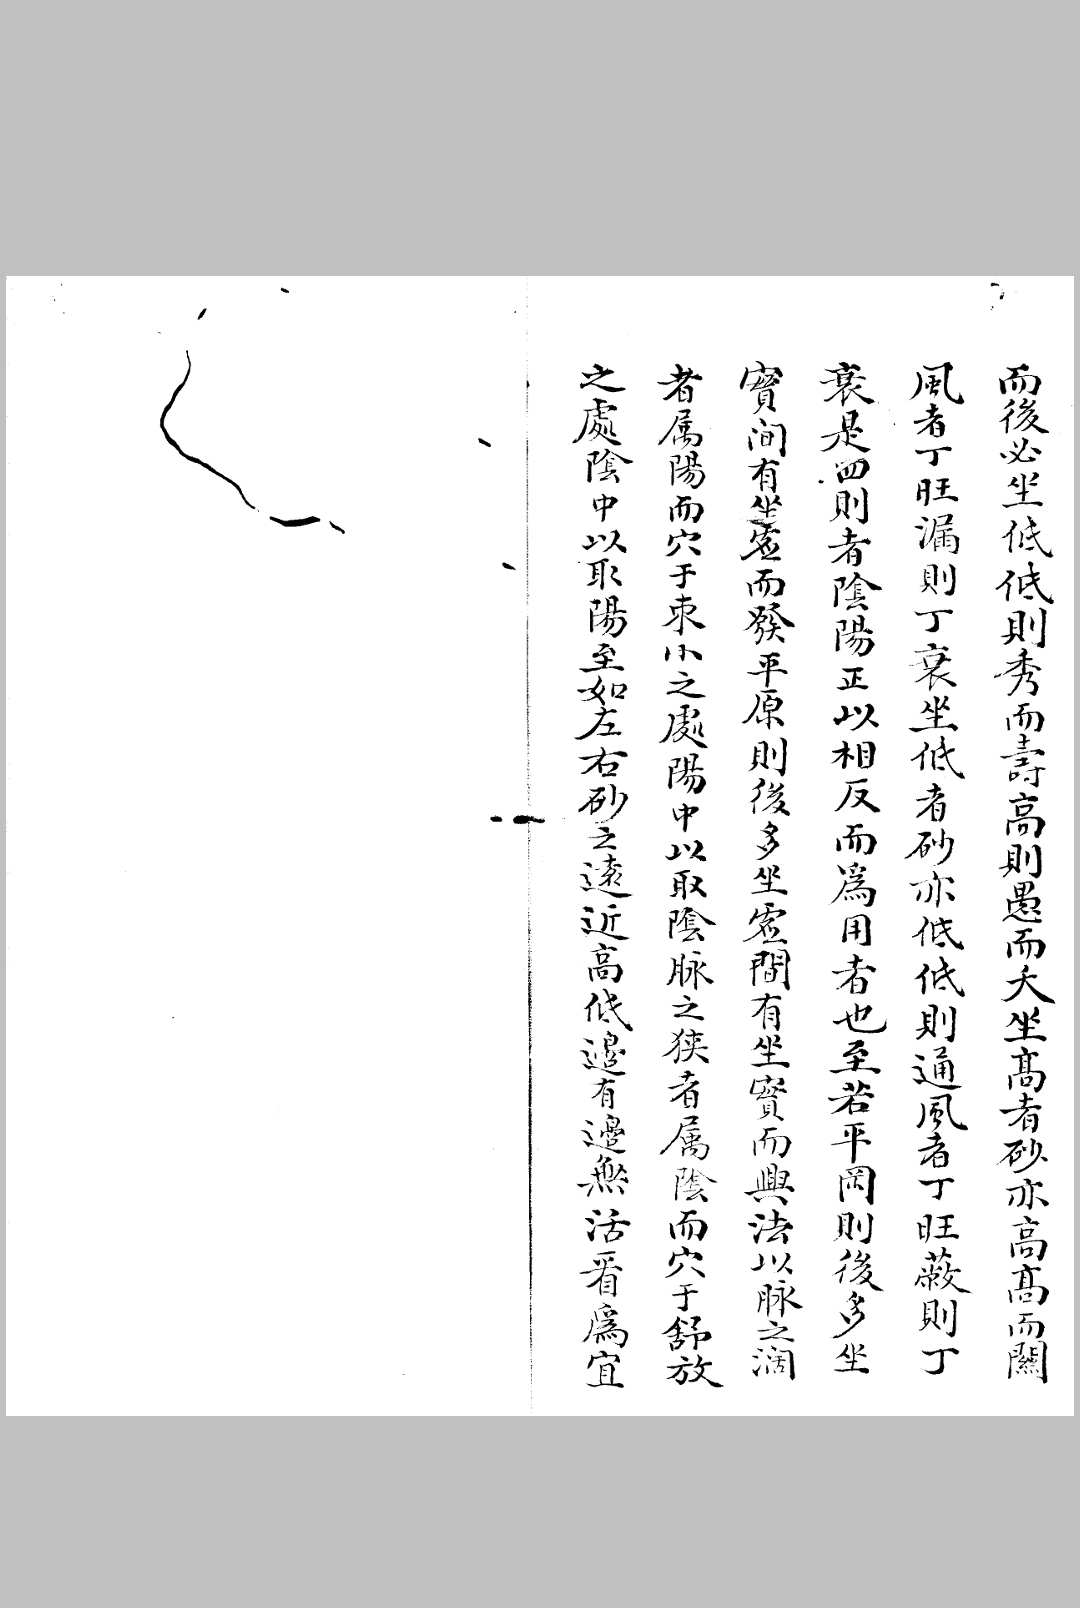 而後必坐低低則秀而壽高則愚而夭坐高者砂亦高高而關
風者丁旺漏則丁衰坐低者砂亦低低則通風者丁旺蔽則丁
衰是四則者陰陽正以相反而為用者也至若平岡則後多坐
實间有坐虛而發平原則後多坐虛間有坐實而興法以脈之濶
者属陽而穴于束小之處陽中以取陰脈之狭者属陰而穴于舒放
之處陰中以取陽至如左右砂之遠近高低邊有邊無活看為宜